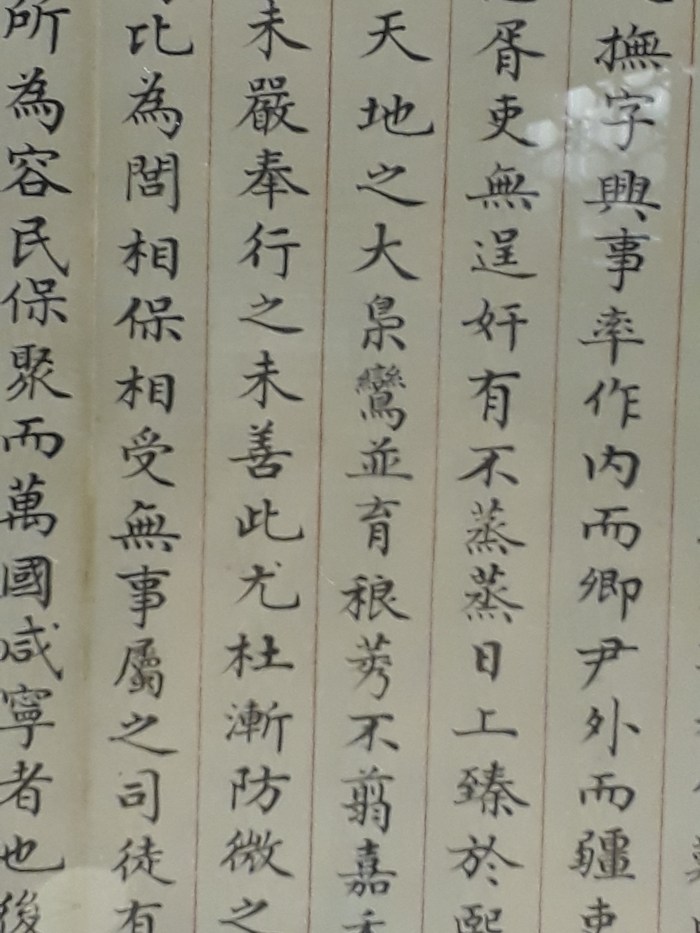 撫字興事率作內而卿尹外而疆吏
胥吏無逞奸有不蒸蒸日上臻於熙
天地之大梟鸞並育稂莠不翦嘉禾
未嚴奉行之未善此尤杜漸防微之
比為閭相保相受無事屬之司徒有
所為容民保聚而萬國咸寧者也後